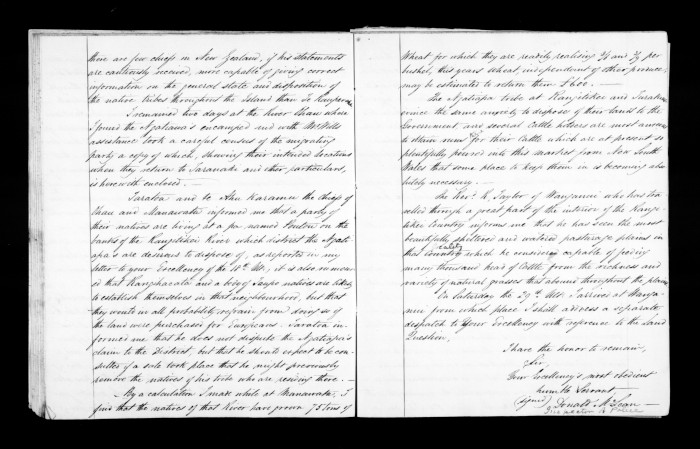 there are few chiefs in New Zealand, if his statements
are cautiously received, more capable of giving correct
information on the general state and disposition of
the native tribes throughout the Island than Te Rauparaha
I remained two days at the River Ohau where
I joined the Ngatiawa's encamped and with Mr Wills
assistance took a careful census of the migrating
party a copy of which, shewing their intended locations
when they return to Taranaki and other particulars,
is herewith enclosed. —
Taratoa and te Ahu Karamu the chiefs of
Ohau and Manawatu informed me that a party of
their natives are living at a pa named Poutou on the
banks of the Rangitikei River which district the Ngati-
apa's are desirous to dispose of, as reported in my
letter to your Excellency of the 11th Ult, it is also rumour-
ed that Rangihaeata and a body of Taupo natives are likely
to establish themselves in that neighbourhood, but that
they would in all probability refrain from doing so if
the land were purchased for Europeans. Taratoa in-
formed me that he does not dispute the Ngatiapa's
claim to the District, but that he should expect to be con-
sulted if a sale took place that he might previously
remove the natives of his tribe who are residing there. —
By a calculation I made while at Manawatu, I
find that the natives of that River have grown 75 tons of
Wheat for which they are readily realising and per
bushel, this years wheat, independent of other produce,
may be estimated to return them £600. —
The Ngatiapa tribe at Rangitikei and Turakina
evince the same anxiety to dispose of their land to the
Government and several Cattle holders are most anxious
to obtain runs for their Cattle which are at present so
plentifully poured into this market from New South
Wales that some place to keep them in is becoming abso-
lutely necessary. —
The Revd. R. Taylor of Wanganui who has tra-
velled through a great part of the interior of the Rangi-
tikei Country informs me that he has seen the most
beautifully sheltered and watered pasturage plains in
that locality which he considers capable of feeding
many thousand head of Cattle from the richness and
variety of natural grasses that abound throughout the plains
On Saturday the 29th. Ult. I arrived at Wanga-
nui from which place I shall address a separate
despatch to Your Excellency with reference to the land
Question,
I have the honor to remain,
Sir,
Your Excellency's most obedient
humble Servant
(signed) Donald McLean —
Inspector of Police